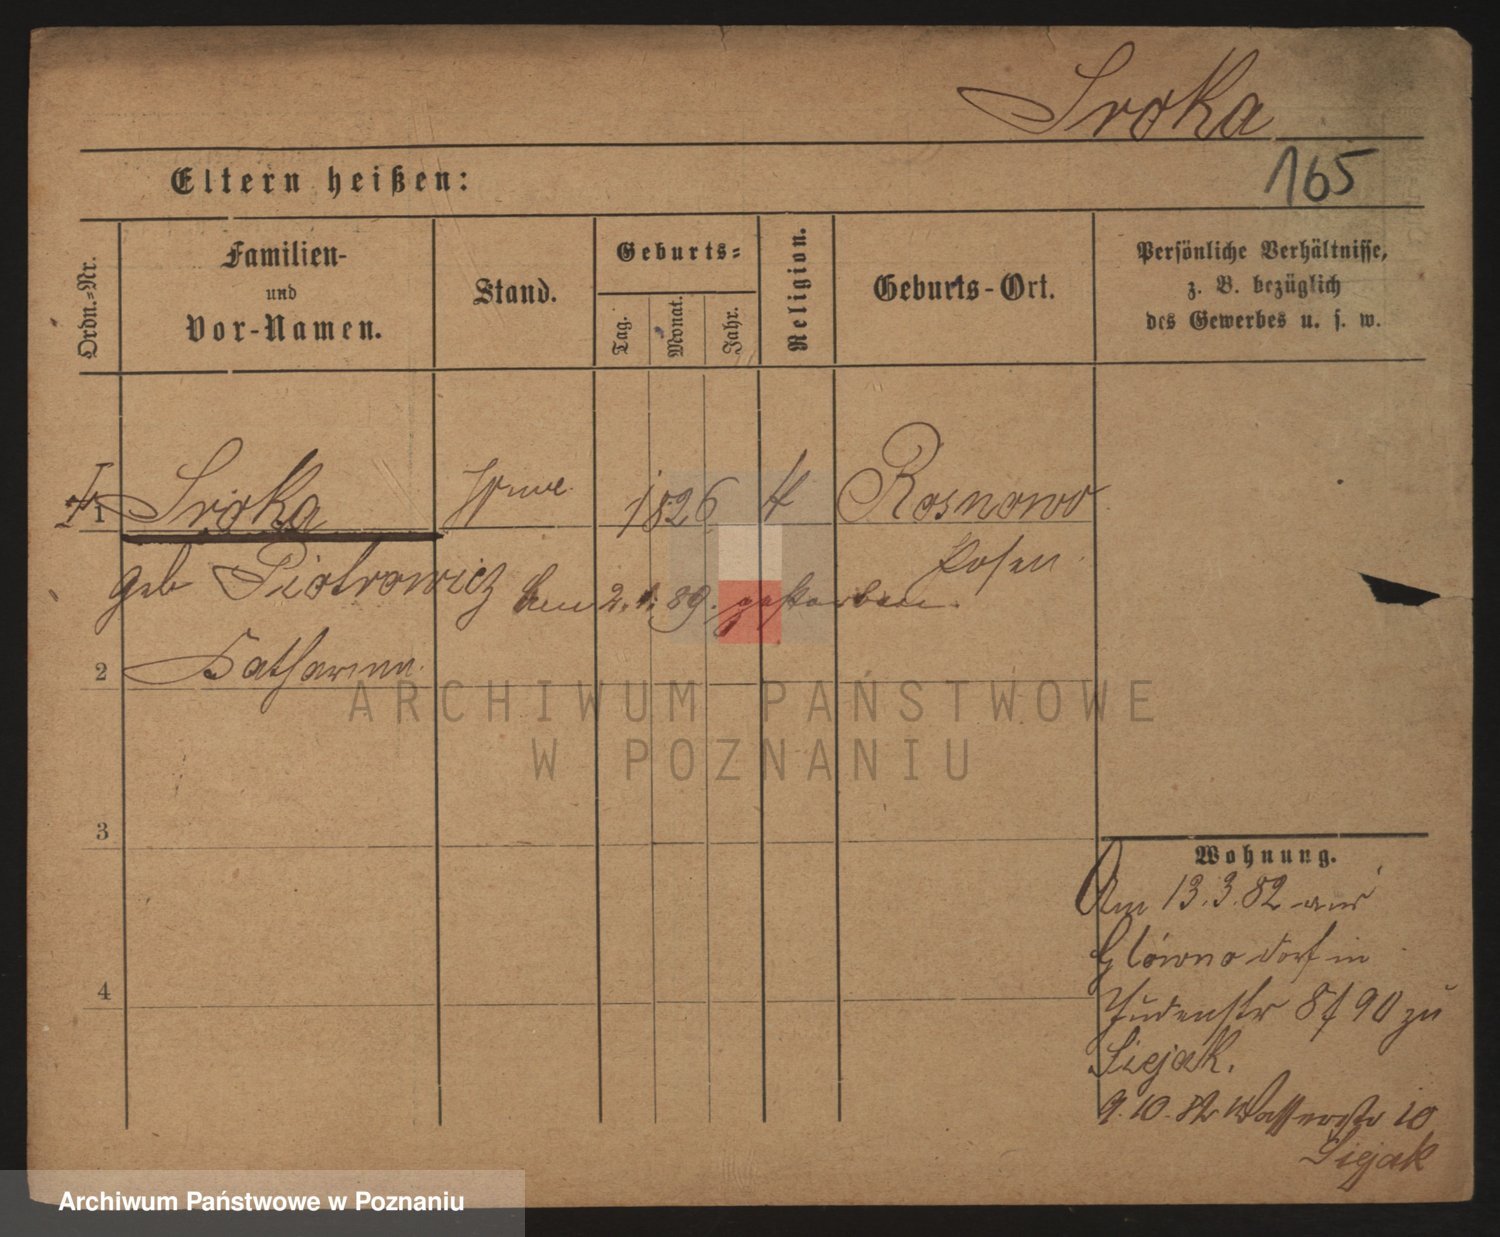 Sroka
165
Eltern heißen:
Ordn.-Nr.
Familien-
und
Vor-Namen.
Stand.
Geburts-
Tag.
Monat.
Jahr.
Religion.
Geburts-Ort.
Persönliche Verhältnisse,
z. B. bezüglich
des Gewerbes u. s. w.
1 Sroka 1826 Rosnowo
Posen
geb Piotrowicz den 2. 1. 89. gestorben.
2 Katharina
ARCHIWUM PAŃSTWOWE
W POZNANIU
3
4
Wohnung.
Am 13.3.82 aus
Glówno dorf in
Judenstr 8/90 zu
Siejak.
9.10.82 Wasserstr 10
Siejak
Archiwum Państwowe w Poznaniu